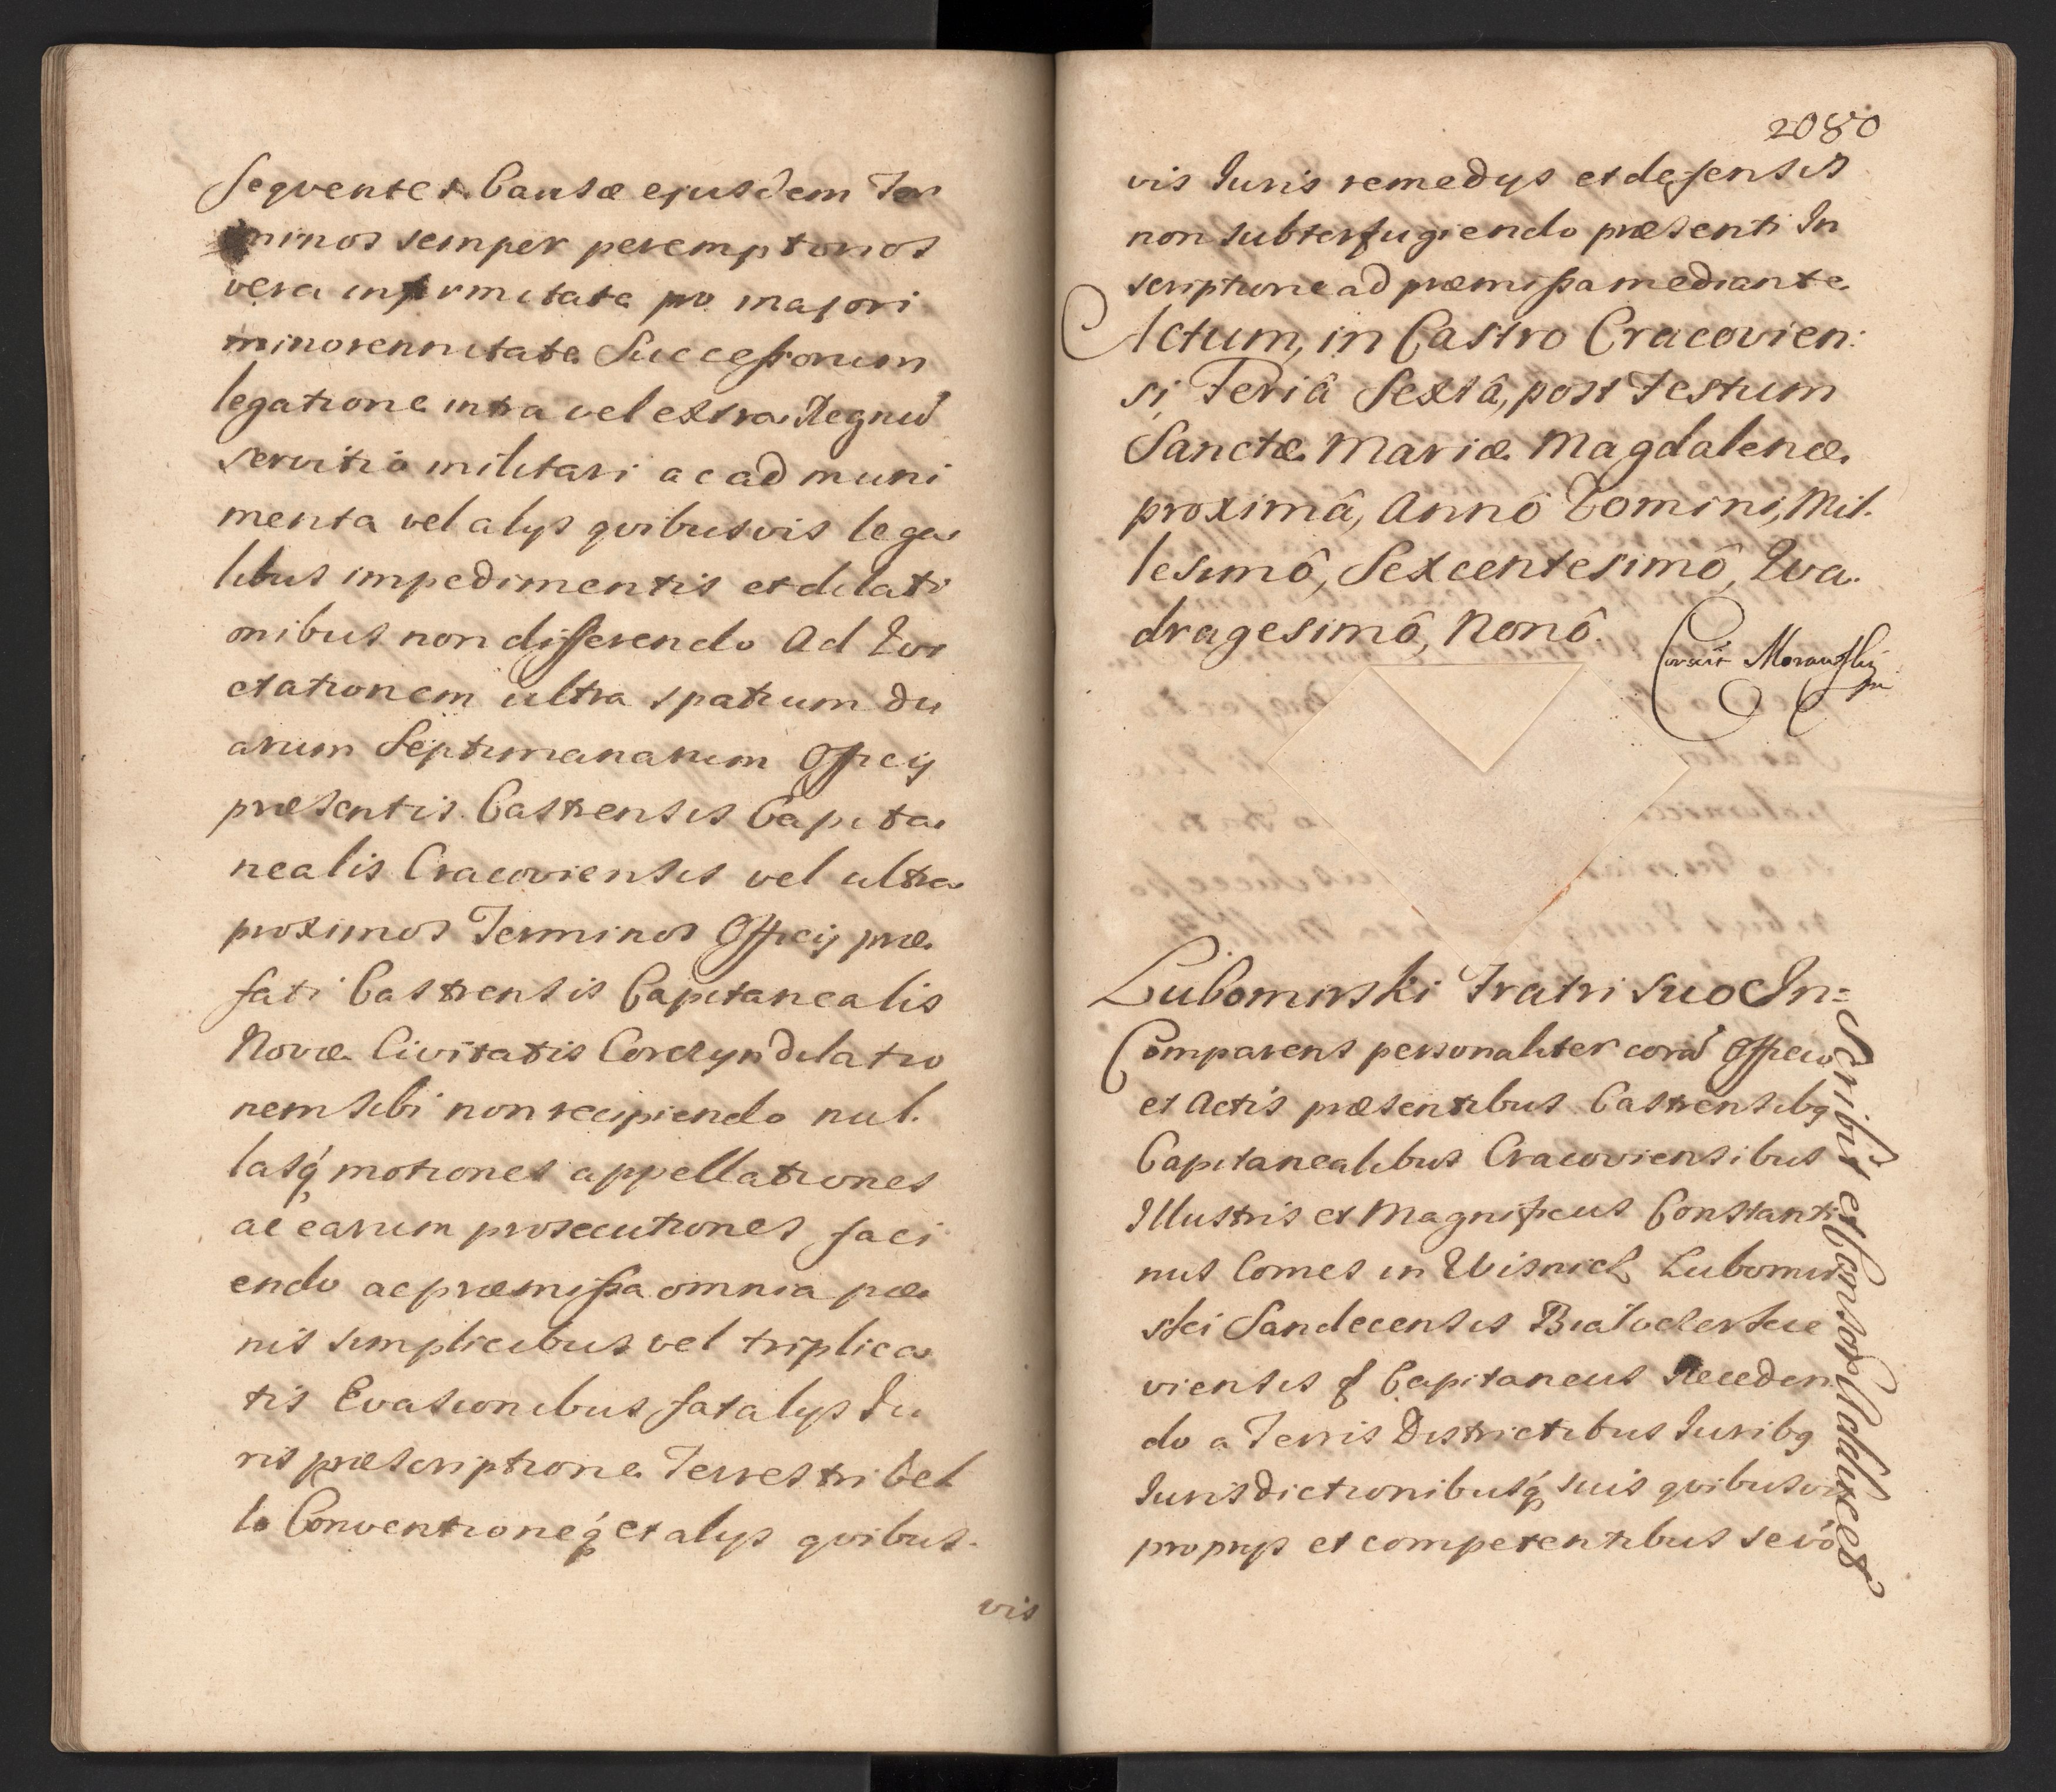 seqventes Causæ ejusdem Ter
minos semper peremptorios
vera infirmitate pro majori
minorennitate Successorum
legatione intra vel extra Regnũ
servitio militari ac ad muni
menta vel alys qvibusvis lega
libus impedimentis et dilati
onibus non differendo Ad Evi
ctationem ultra spatium du
arum Septimanarum Officy
præsentis Castrensis Capita
nealis Cracoviensis vel ultra
proximos Terminos Officy præ
fati Castrensis Capitanealis
Novæ Civitatis Corczyn dilatio
nem sibi non recipiendo nul
lasq́ motiones appellationes
ac earum prosecutiones faci
endo ac præmissa omnia pæ
nis simplicibus vel triplica
tis Evasionibus fatalys Iu
ris præscriptione Terrestri bel
lo Conventioneq́ et alys qvibus
vis
2080
vis Iuris remedys et defensis
non subterfugiendo præsenti In
scriptione ad præmissa mediante
Actum, in Castro Cracovien:
si, Feriâ Sextâ, post Festum
Sanctæ Mariæ Magdalenæ
proximâ, Annô Domini, Mil
lesimô, Sexcentesimô, Qva
dragesimô, Nonô.
Lubomirski Fratri suo In=
scribit et Consors
Comparens personaliter corã Officio
et Actis præsentibus Castrensibq
Capitanealibus Cracoviensibus
Illustris et Magnificus Constanti
nus Comes in Wisnicz Lubomir
ski Sandecensis Białocerkie
viensis Capitaneus Receden
do a Terris Districtibus Iuribq
Iurisdictionibusq́ suis qvibusvis
proprys et competentibus sevõ